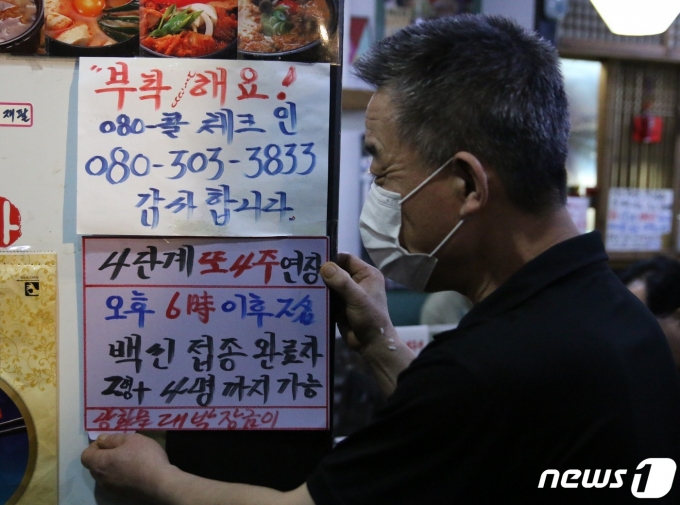 "부탁해요!
080-콜 체크인
080-303-3833
감사합니다.
4단계 또 4주 연장
오후 6時 이후 저녁
백신 접종 완료자
2명+ 4명 까지 가능
광화문 대박 장금이
news1